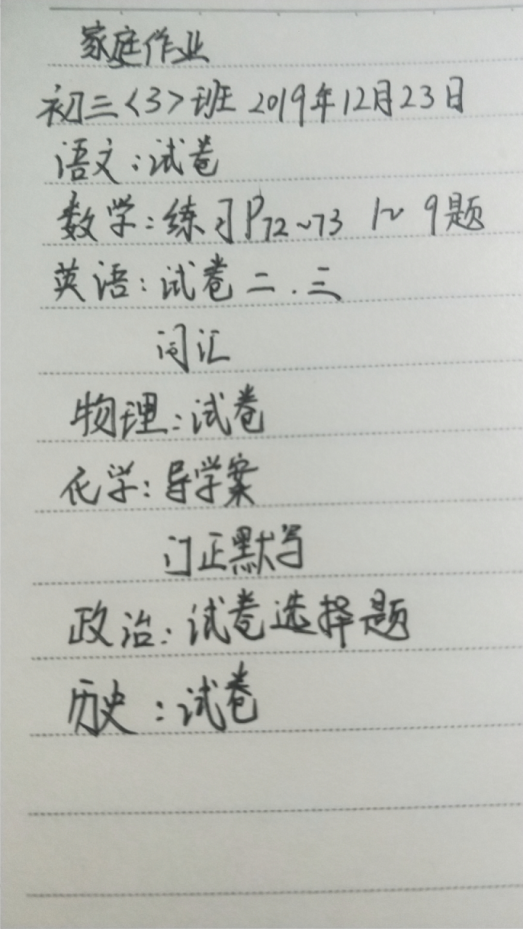 家庭作业
初三<3>班 2019年12月23日
语文:试卷
数学:练习P72~73 1~9题
英语:试卷二.三
词汇
物理:试卷
化学:导学案
订正默写
政治:试卷选择题
历史:试卷